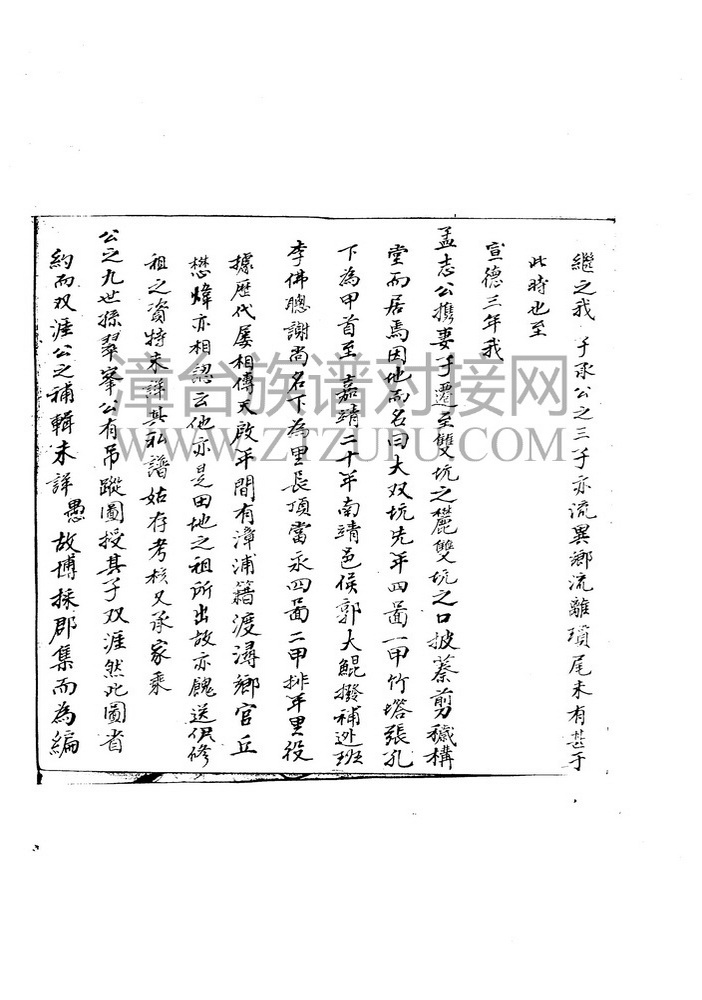 繼之我 子承公之三子亦流異鄉流離瑣尾未有甚于
此時也至
宣德三年我
孟志公携妻子遷至雙坑之麓雙坑之口披蓁剪穢構
堂而居焉因地而名曰大双坑先年四啚一甲竹塔張孔
下為甲首至 嘉靖二十年南靖邑侯郭大鯤撥補迯班
李佛聰謝尚名下為里長頂當永四啚二甲排年里役
據歷代屡相傳天啟年間有漳浦籍渡潯鄉官丘
懋煒亦相認云他亦是田地之祖所出故亦餽送伊修
祖之資特未詳其私譜姑存考核又承家乘
公之九世孫翠峯公有吊蹤圖授其子双涯然此圖省
約而双涯公之補輯未詳 愚故博採郡集而為編
漳台族谱对接网
WWW.ZTZUPU.COM